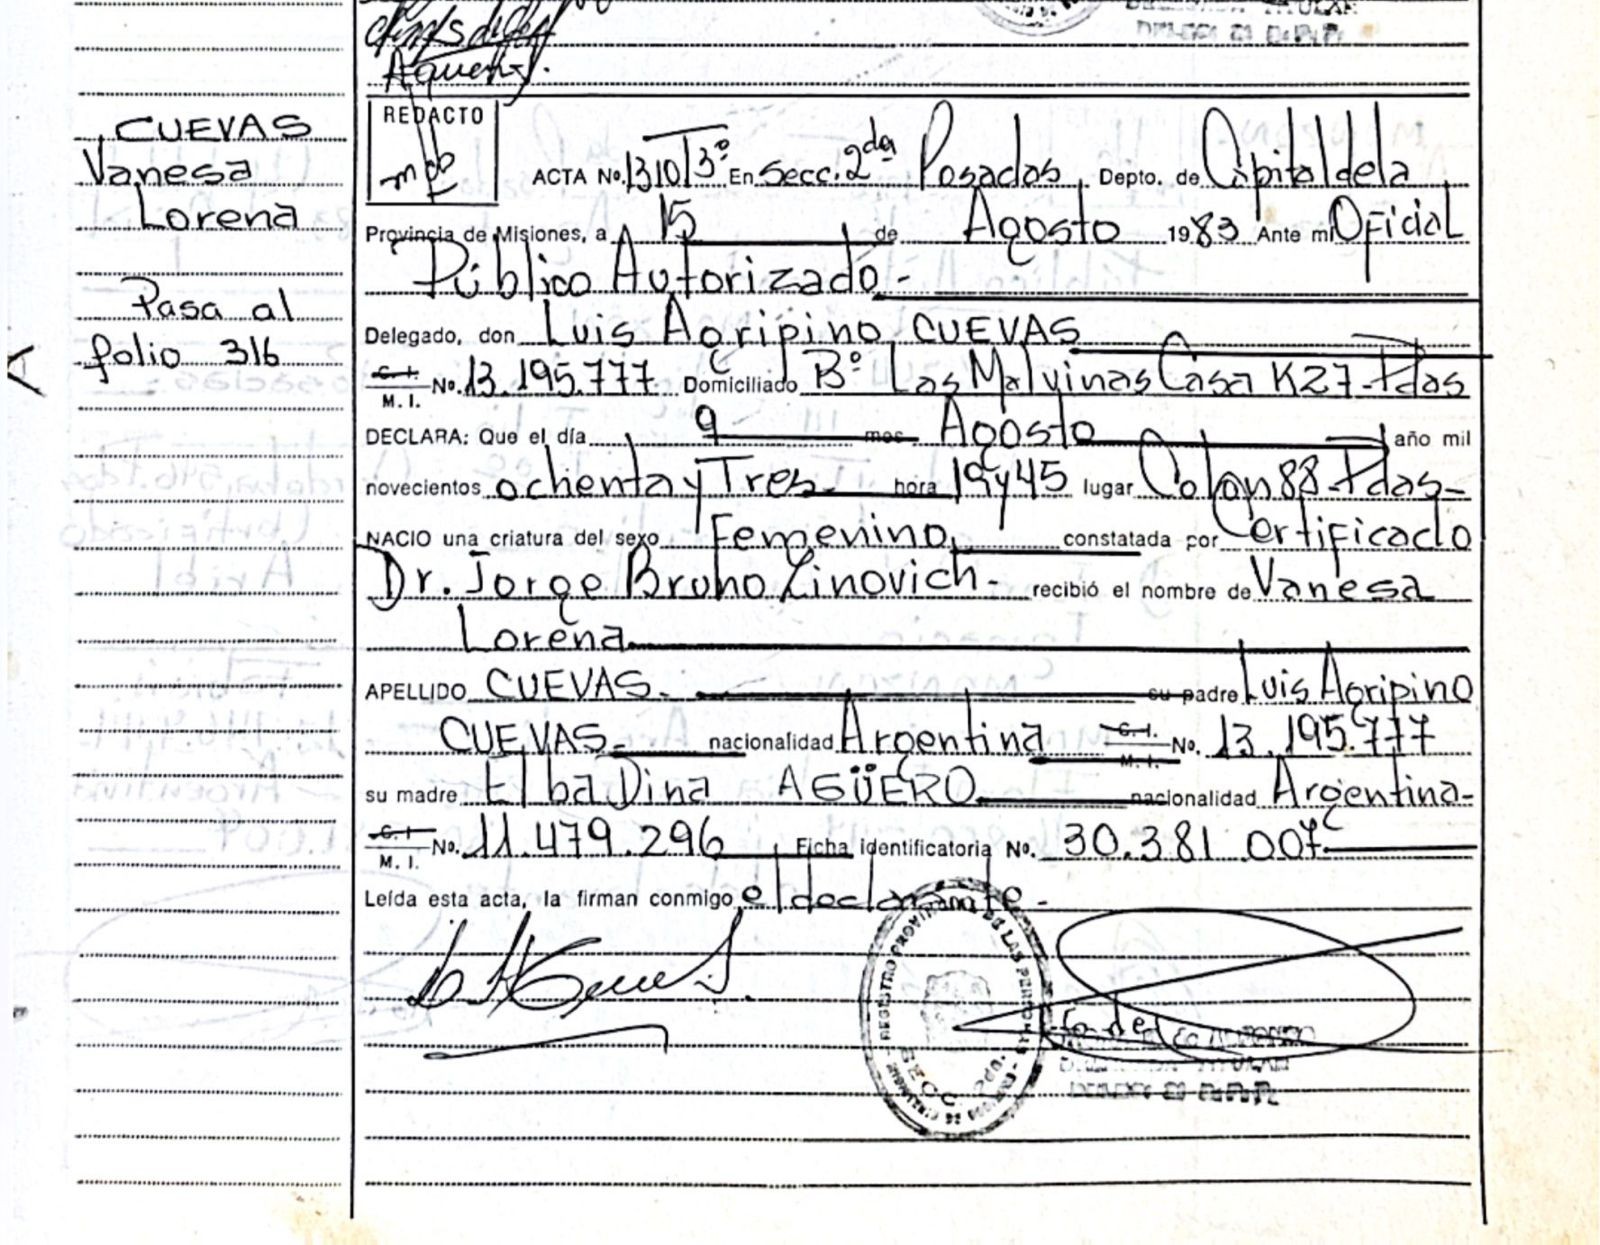 Agüero
CUEVAS
Vanesa
Lorena
Pasa al
folio 316
REDACTO
ACTA No. 1310 T 3º En Secc. 2da Posadas Depto. de Capital de la
Provincia de Misiones, a 15 de Agosto 1983 Ante mi Oficial
Público Autorizado-
Delegado, don Luis Agripino CUEVAS
C. I. M. I. No. 13.195.777 Domiciliado Bº Las Malvinas Casa K27-Pdas
DECLARA: Que el día 9 mes Agosto año mil
novecientos ochenta y Tres hora 19y45 lugar Colon 88-Pdas-
NACIO una criatura del sexo Femenino constatada por Certificado
Dr. Jorge Bruno Zinovich- recibió el nombre de Vanesa
Lorena
APELLIDO CUEVAS- su padre Luis Agripino
CUEVAS- nacionalidad Argentina C. I. M. I. No. 13.195.777
su madre Elba Dina AGÜERO nacionalidad Argentina-
C. I. M. I. No. 11.479.296 Ficha identificatoria No. 30.381.007
Leída esta acta, la firman conmigo el declarante-
REGISTRO PROVINCIAL DE LAS PERSONAS
SECC. 2da.
TITULAR